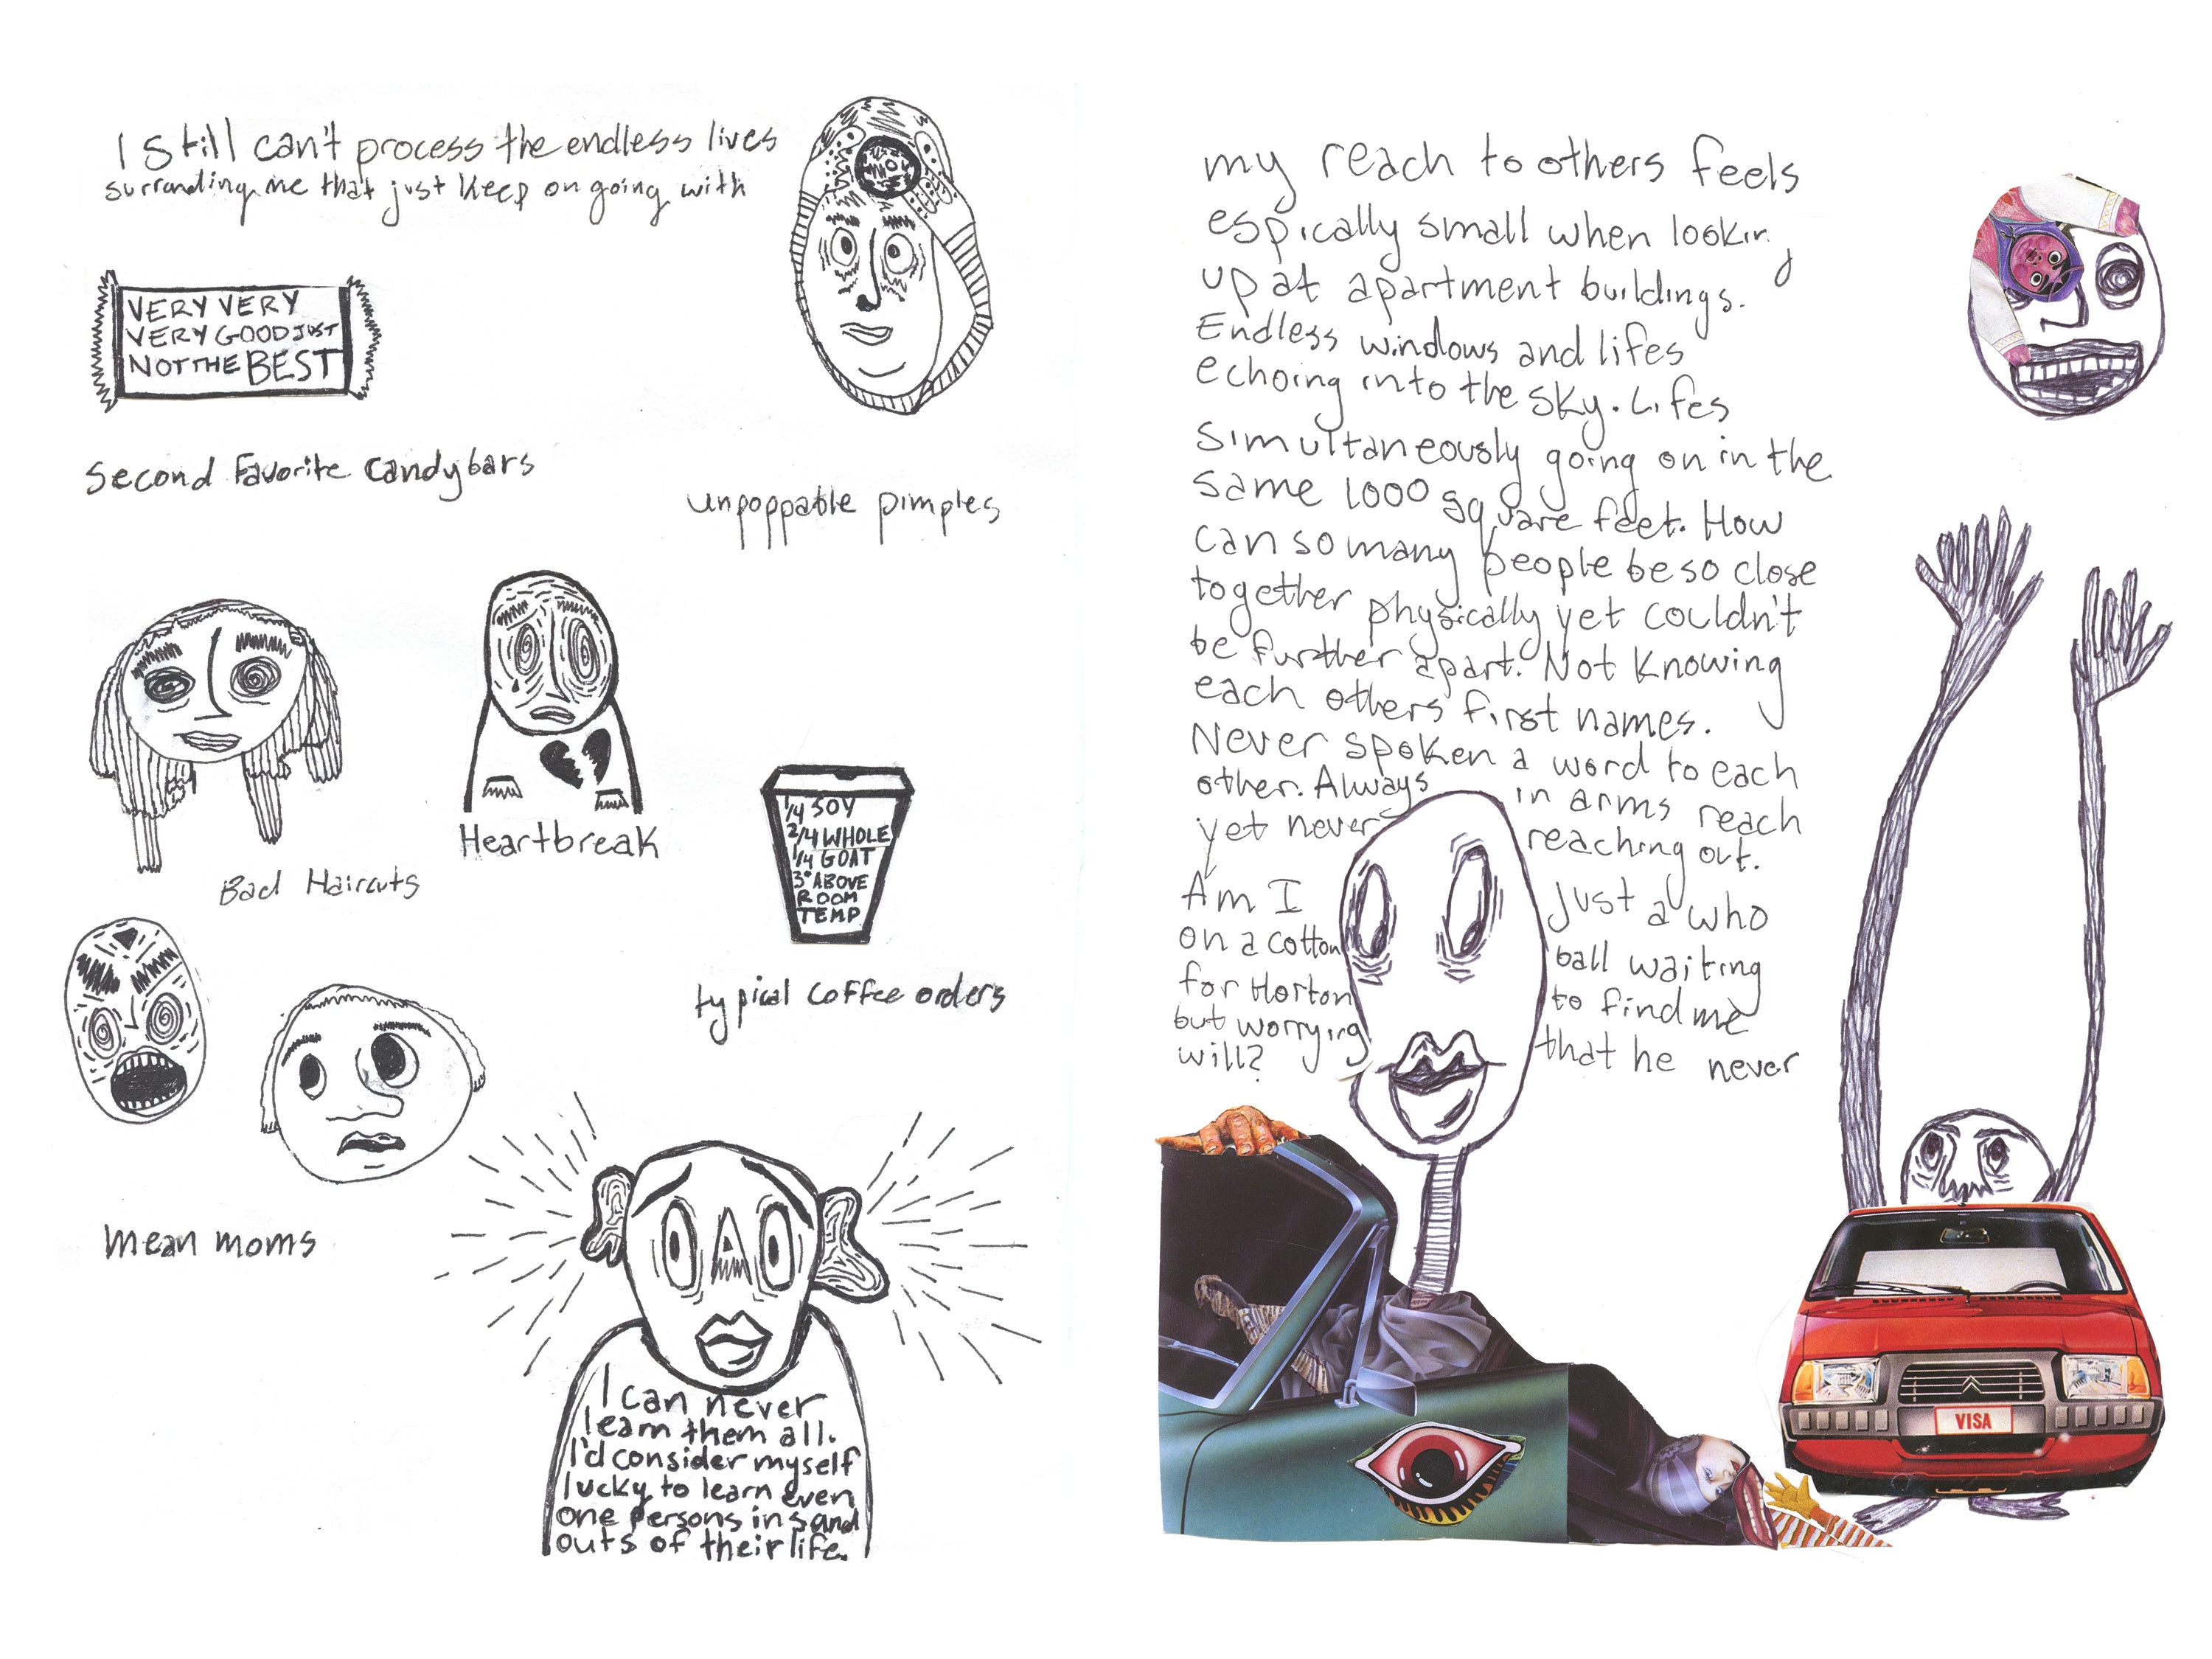 I Still can't process the endless lives
surranding me that just keep on going with
VERY VERY
VERY GOOD JUST
NOT THE BEST
Second Favorite Candybars
NOW
unpoppable pimples
Bad Haircuts
Heartbreak
1/4 SOY
2/4 WHOLE
1/4 GOAT
3° ABOVE
ROOM
TEMP
typical coffee orders
mean moms
I can never
learn them all.
I'd consider myself
lucky to learn even
one persons ins and
outs of their life.
my reach to others feels
espically small when looking
up at apartment buildings.
Endless windows and lifes
echoing into the sky. Lifes
simultaneously going on in the
same 1000 square feet. How
can so many people be so close
together physically yet couldn't
be further apart. Not knowing
each others first names.
Never spoken a word to each
other. Always in arms reach
yet never reaching out.
Am I just a who
on a cotton ball waiting
for Horton to find me
but worrying that he never
will?
VISA